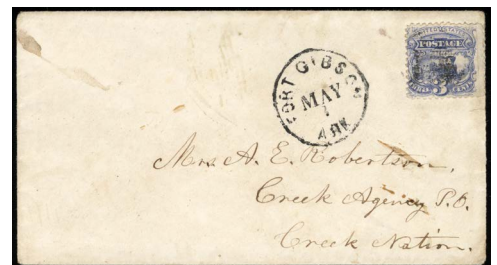 UNITED STATES
POSTAGE
3
FORT GIBSON
MAY
1
ARK
Mrs A. E. Robertson,
Creek Agency P.O.
Creek Nation.